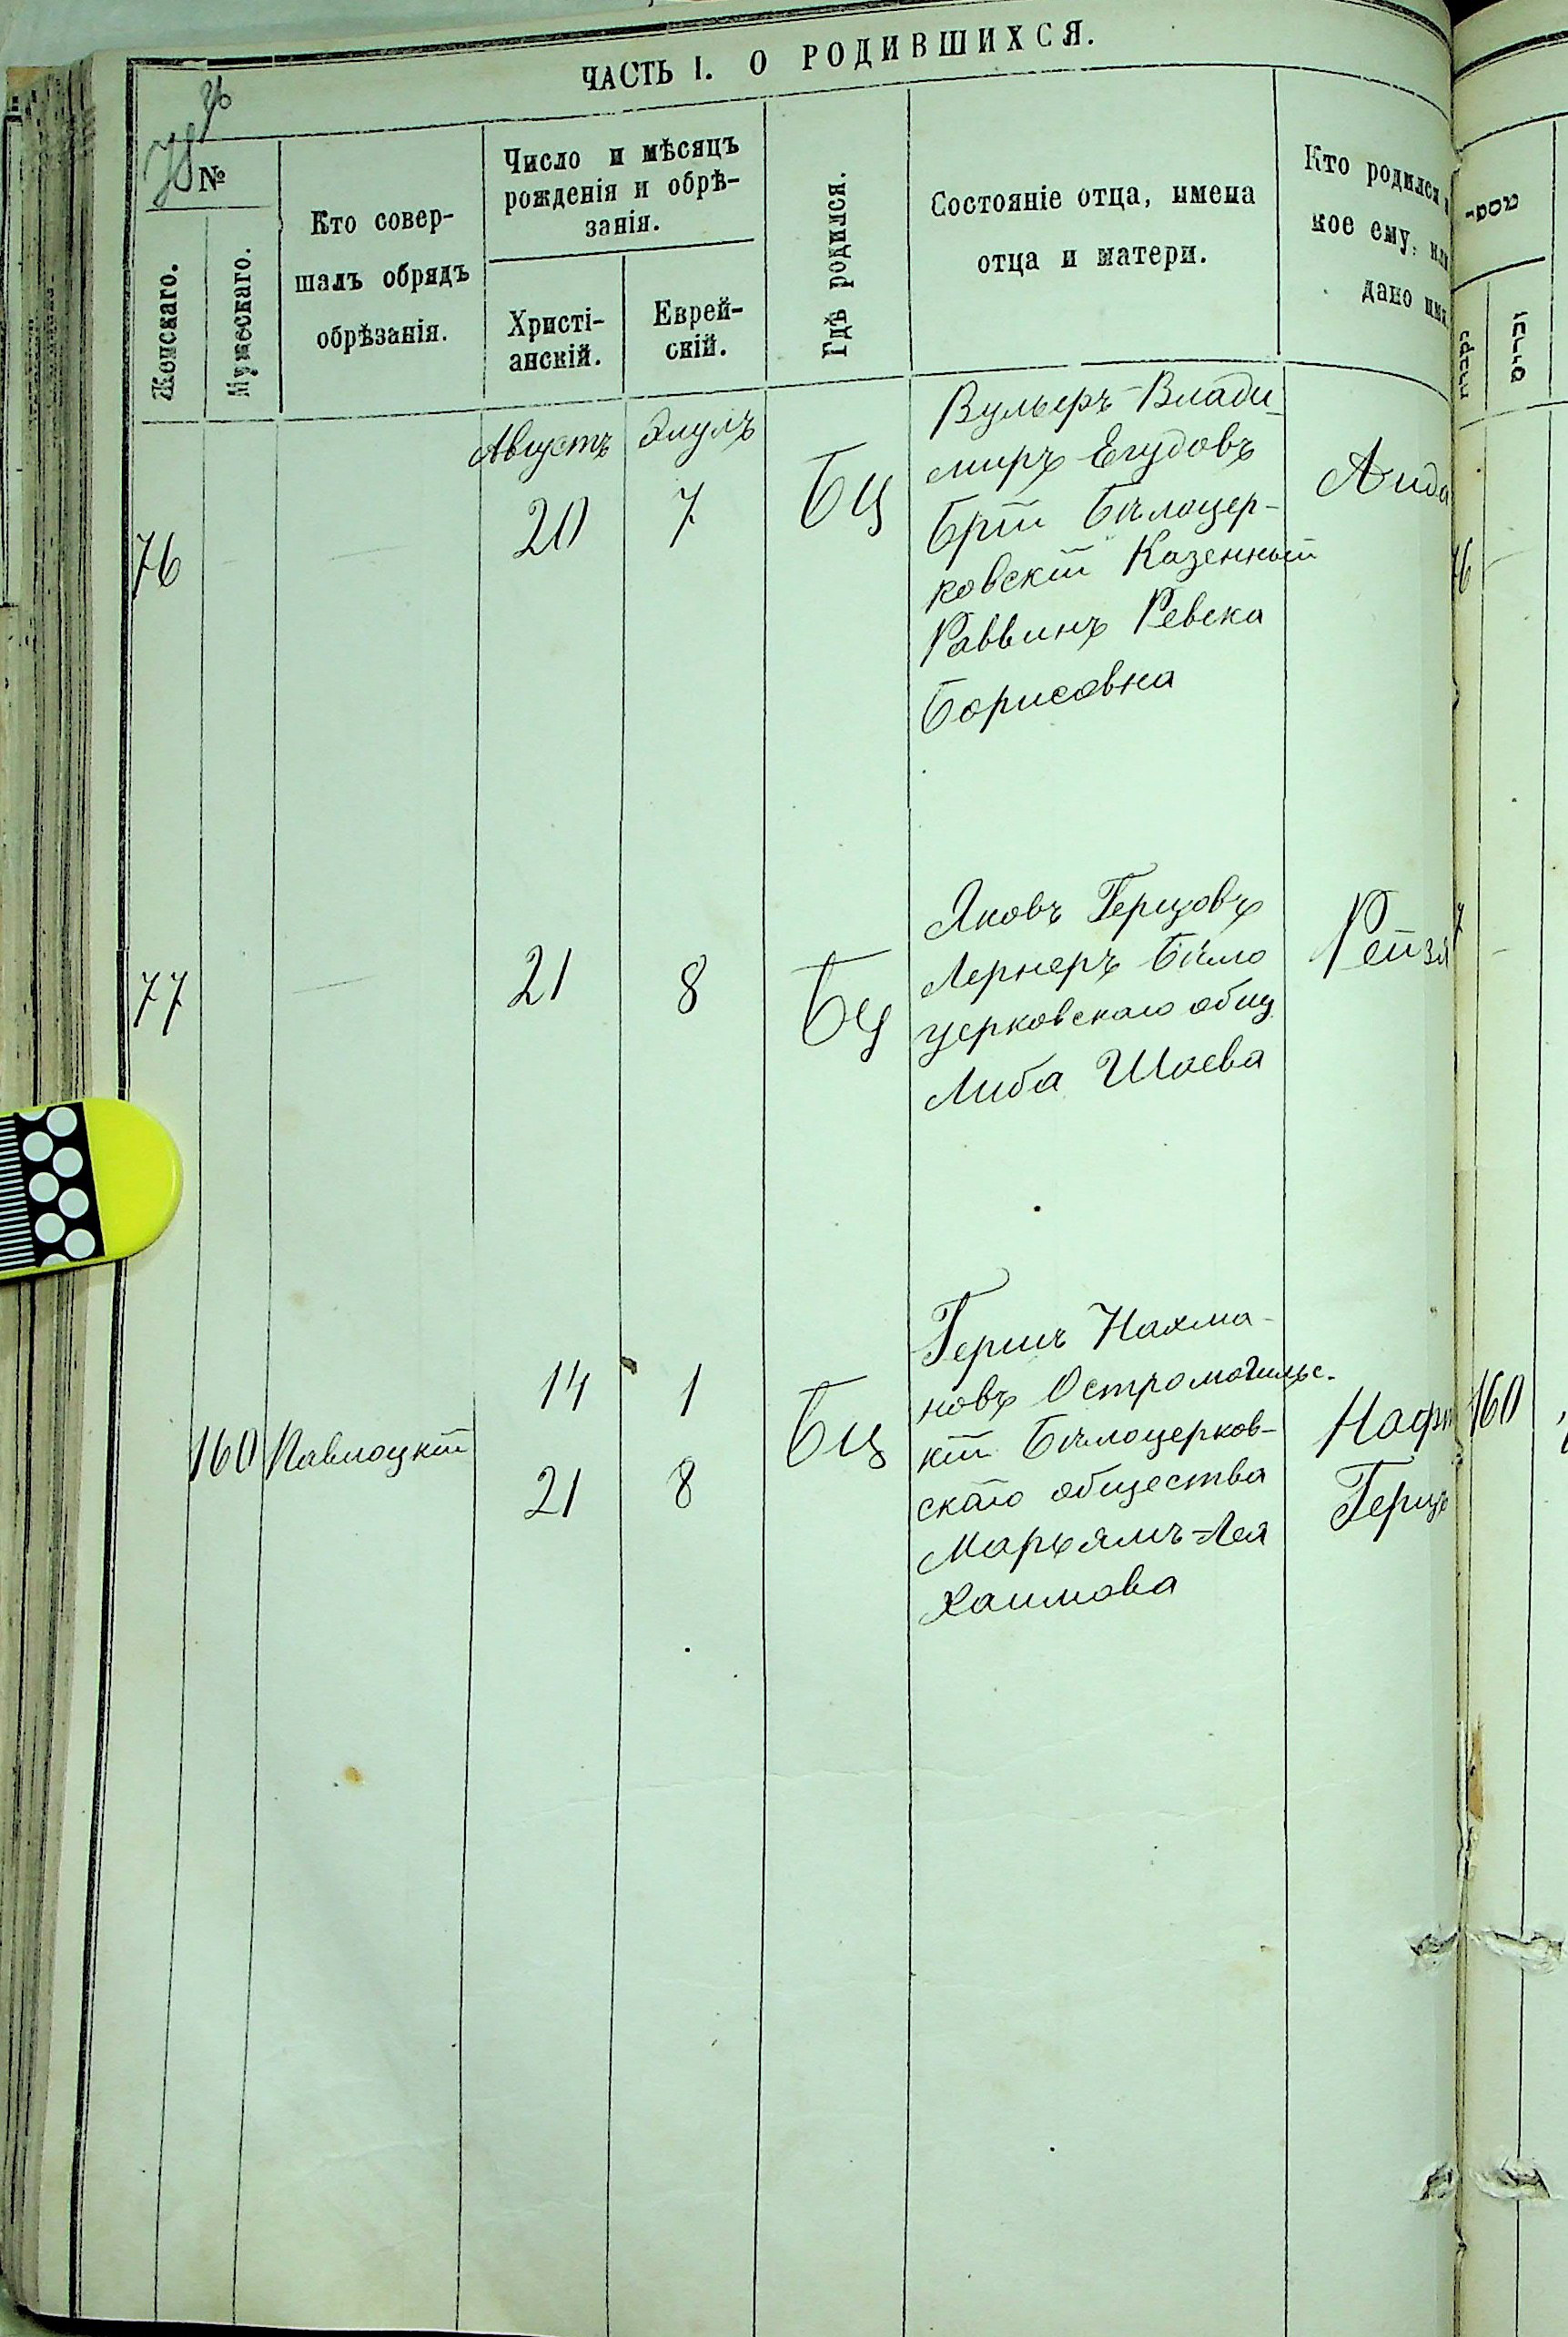 ЧАСТЬ I. О РОДИВШИХСЯ.
№
Женскаго.
Мужескаго.
Кто совер-
шалъ обрядъ
обрѣзанія.
Число и мѣсяцъ
рожденія и обрѣ-
занія.
Христі-
анскій.
Еврей-
скій.
Гдѣ родился.
Состояніе отца, имена
отца и матери.
Кто родился
кое ему, или
дано имя
Августъ Элулъ
76
20
7
БЦ
Вульфъ-Влади-
миръ Егудовъ
Бѣлоцер-
ковскій Казенный
Раввинъ Ревека
Борисовна
Аида
77
21
8
БЦ
Яковъ Герцовъ
Лернеръ Бѣло
церковскаго общ
Либа Шаева
Рейзя
160
Паволоцкій
14
1
21
8
БЦ
Гершъ Нахма-
новъ Остромогильс-
кій Бѣлоцерков-
скаго общества
Марьямъ=Лея
Хаимова
Нафт
Герцъ
160